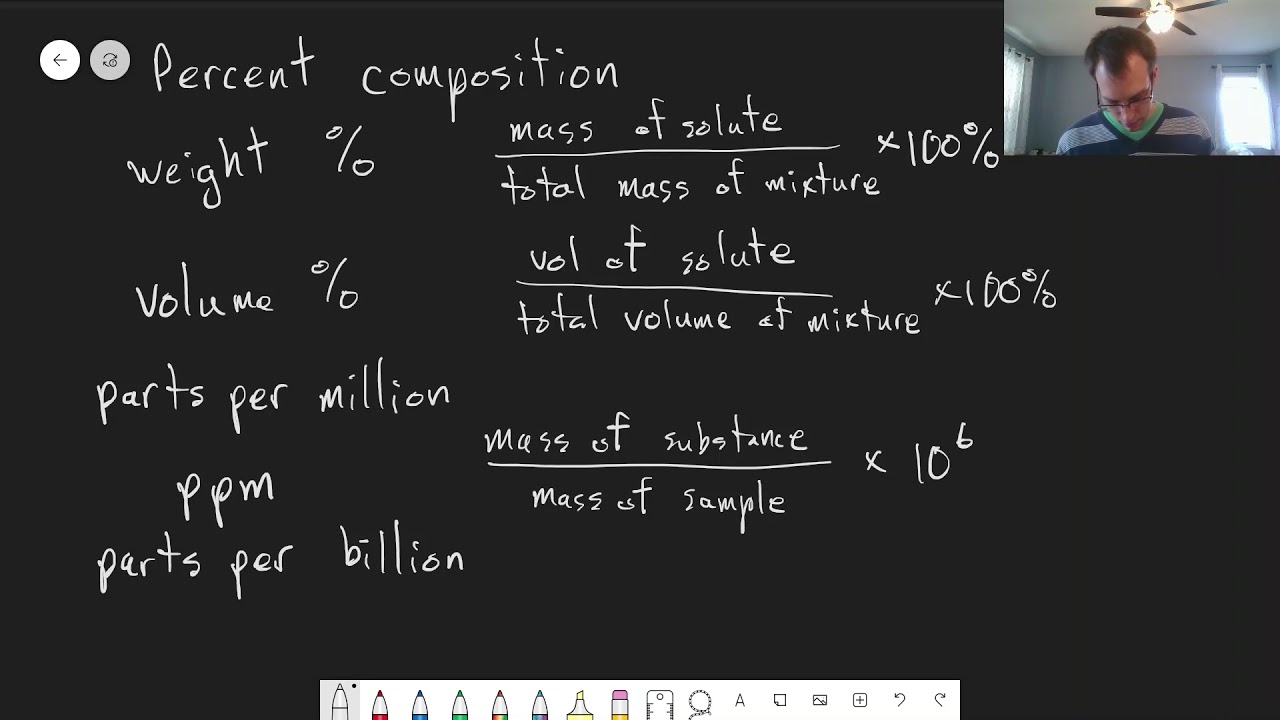 Percent composition
weight %
mass of solute
total mass of mixture
×100%
volume %
vol of solute
total volume of mixture
×100%
parts per million
ppm
mass of substance
mass of sample
× 10⁶
parts per billion
A